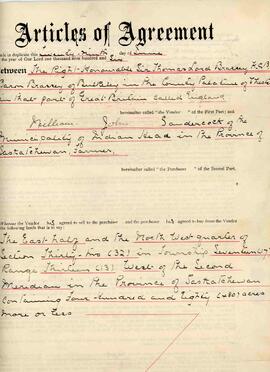 Articles of Agreement
Made in duplicate this twenty-ninth day of June
year of Our Lord one thousand nine hundred and
Between The Right Honourable Sir Thomas Lord Brassey K.C.B.
Baron Brassey of Bulkeley in the County Palatine of Chester
in that part of Great Britain called England
hereinafter called the "Vendor" of the First Part; and
William John Sandercock of the
Municipality of Indian Head in the Province of
Saskatchewan Farmer.
hereinafter called the "Purchaser" of the Second Part.
Whereas the Vendor has agreed to sell to the purchaser and the purchaser has agreed to buy from the Vendor
the following lands that is to say:
The East half and the North West quarter of
Section Thirty-two (32) in Township Seventeen (17)
Range Thirteen (13) West of the Second
Meridian in the Province of Saskatchewan
containing Four hundred and Eighty (480) acres
more or less